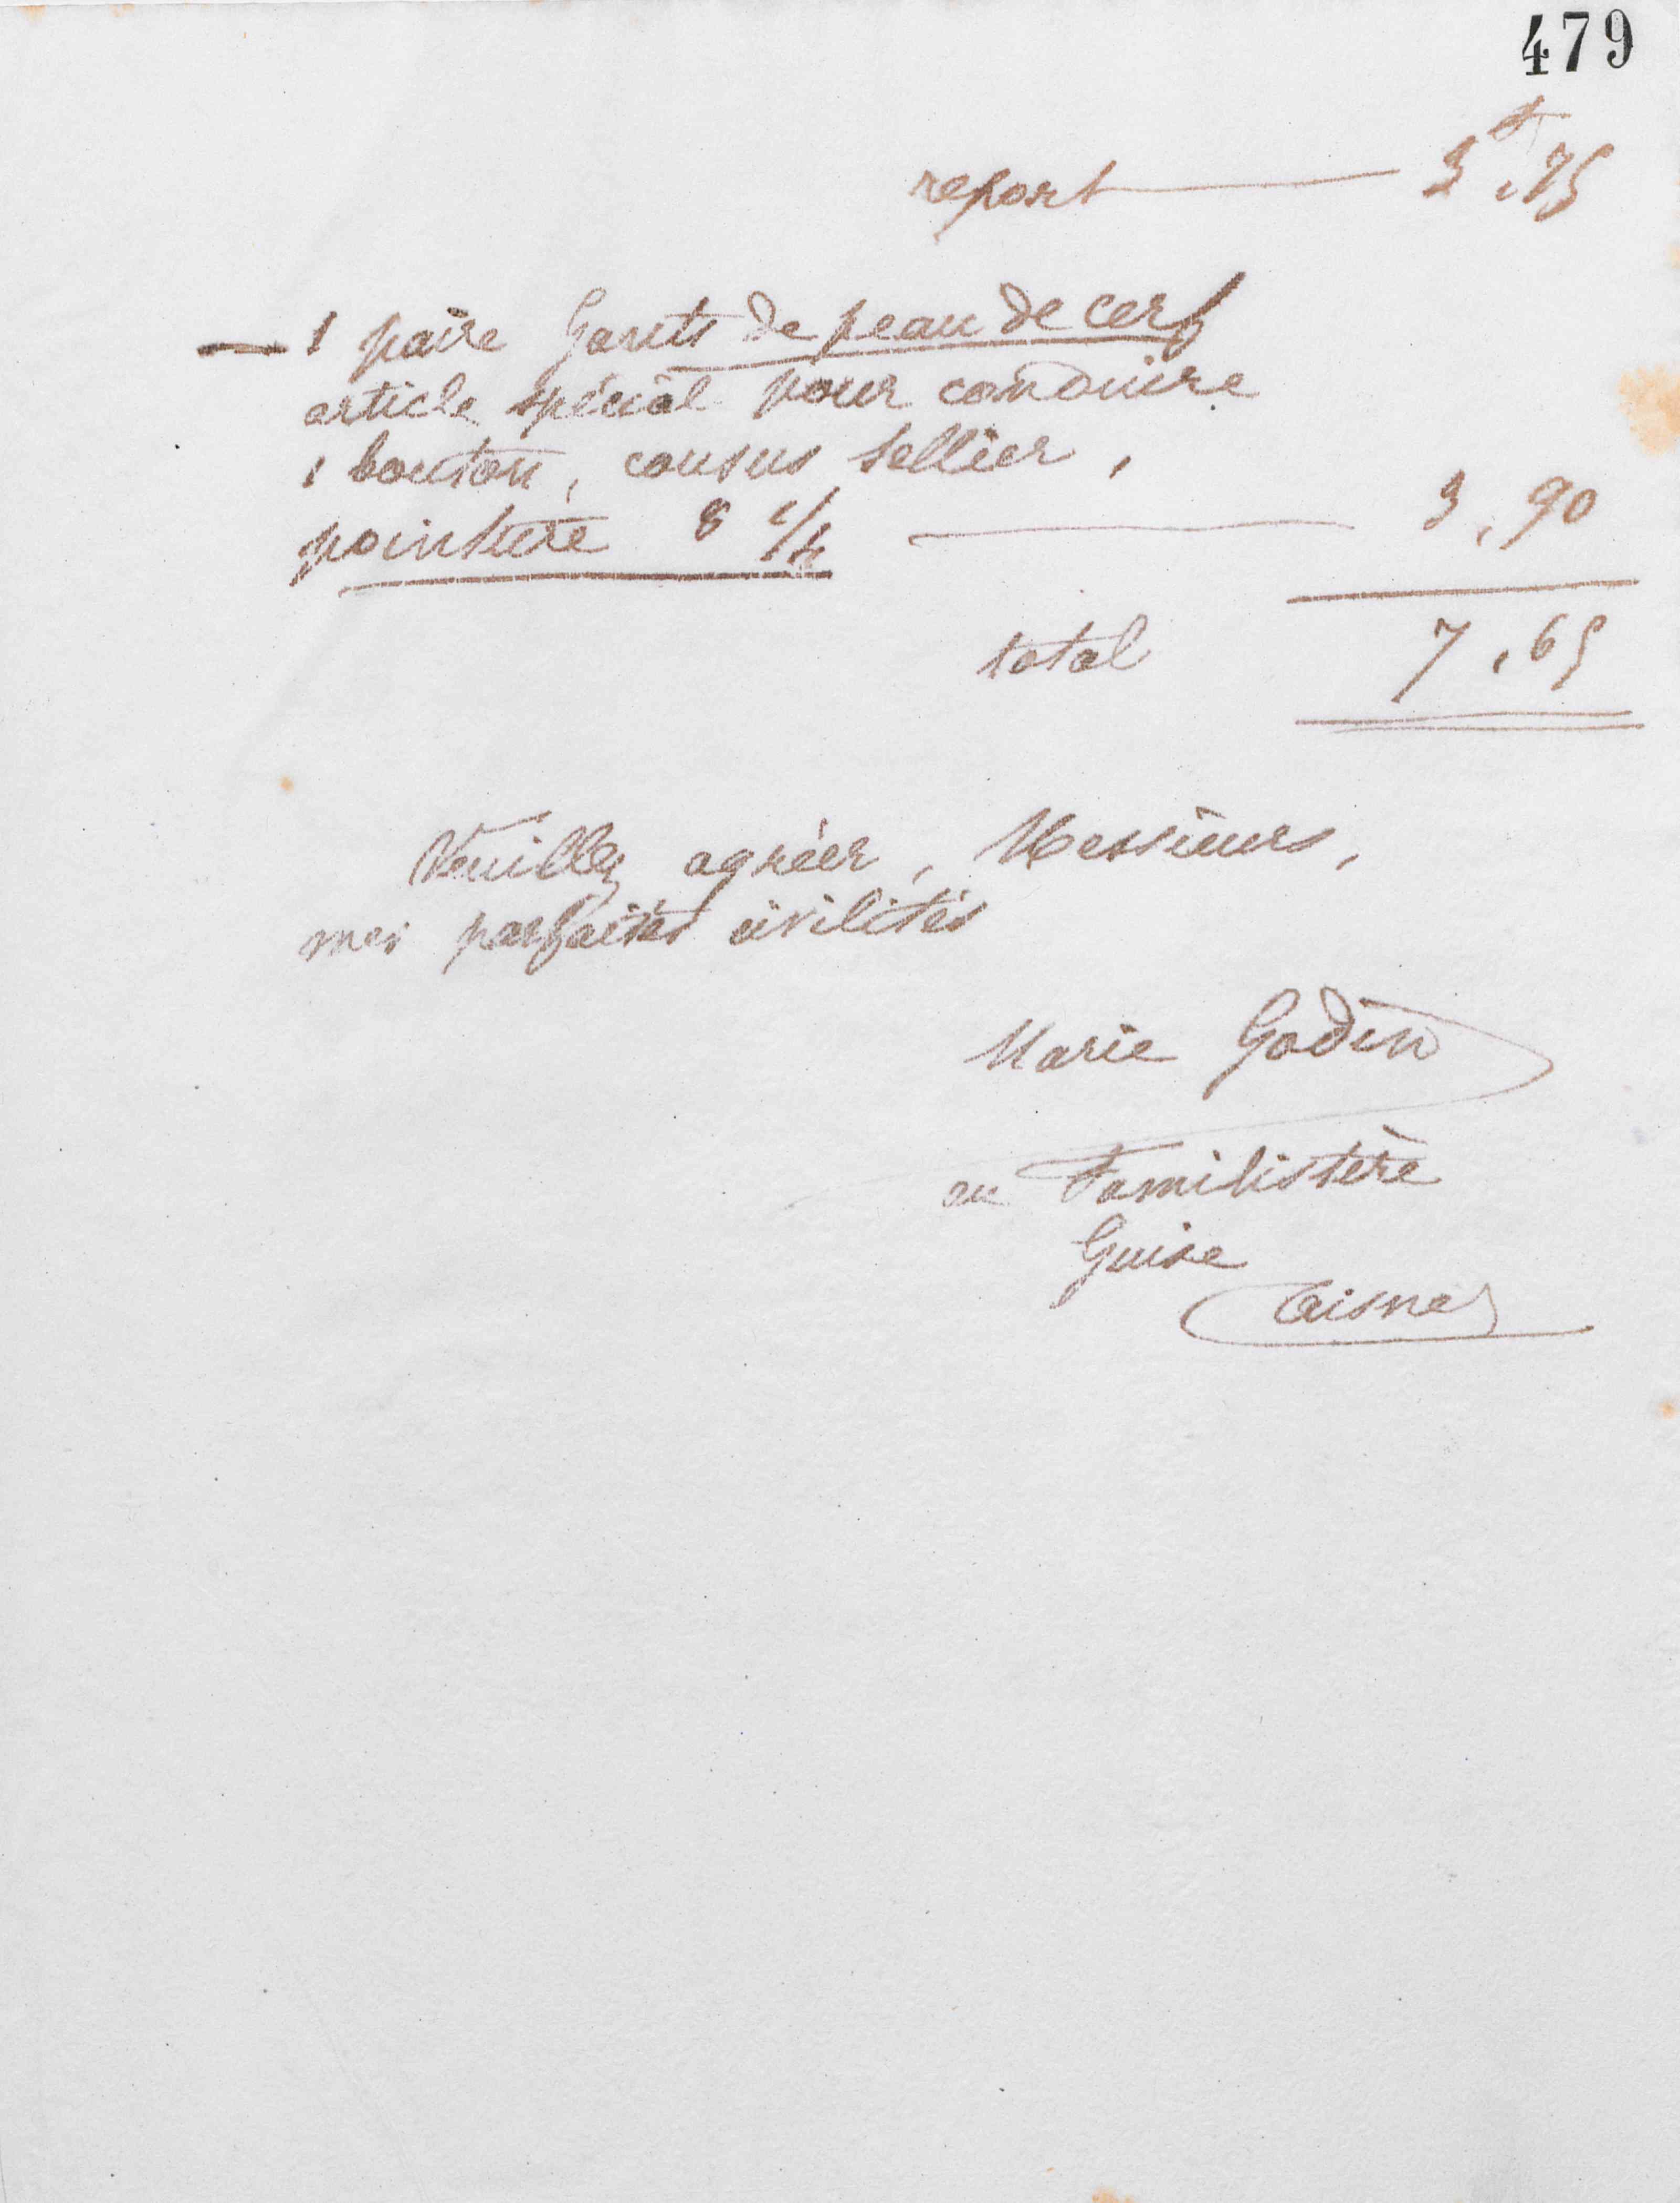 479
report — 3f,75
— 1 paire Gants de peau de cerf
article spécial pour conduire
1 bouton, cousus sellier,
pointure 8 1/4 — 3,90
total 7,65
Veuillez agréer, Messieurs,
mes parfaites civilités
Marie Godin
au Familistère
Guise
Aisne